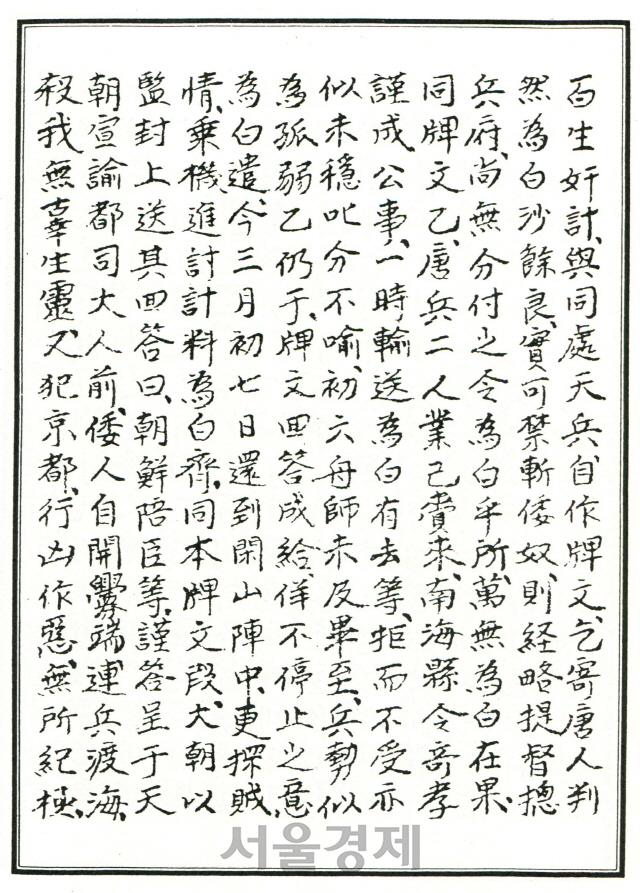 百生奸計、與同處天兵、自作牌文、乞寄唐人判
然為白沙餘良、實可禁斬倭奴、則経略提督摠
兵府、尚無分付之令為白乎所、萬無為白在果、
同牌文乙、唐兵二人業已賚來、南海縣令奇孝
謹成公事、一時輸送為白有去等、拒而不受亦
似未穩叱分不喻、初六舟師未及畢至、兵勢似
為孤弱乙仍于、牌文回答成給、佯不停止之意、
為白遣、今三月初七日還到閑山陣中、更探賊
情、乗機進討計料為白齊、同本牌文段、大朝以
監封上送其回答曰、朝鮮陪臣等、謹答呈于天
朝宣諭都司大人前、倭人自開釁端、連兵渡海、
殺我無辜生靈、又犯京都、行凶作惡、無所紀極、
서울경제